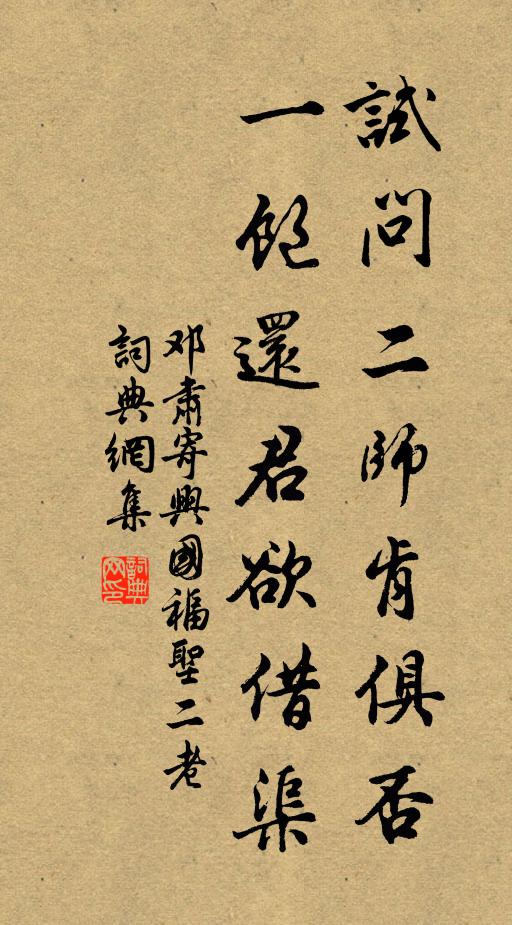 試問二師肯俱否
一飽還君欲借渠
邓肅寄興國福聖二老
詞典網集
詞典网印